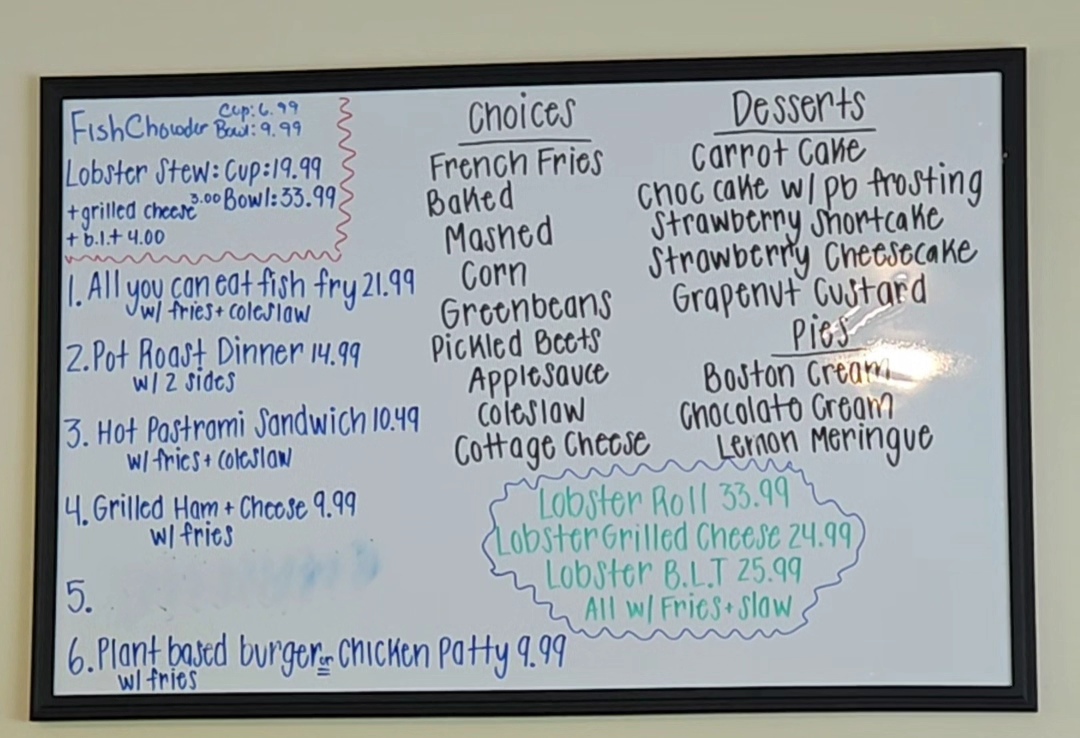 FishChowder Cup: 6.99
Bowl: 9.99
Lobster Stew: Cup: 19.99
+ grilled cheese 3.00 Bowl: 33.99
+ b.l.t 4.00
1. All you can eat fish fry 21.99
w/ fries + coleslaw
2. Pot Roast Dinner 14.99
w/ 2 sides
3. Hot Pastrami Sandwich 10.49
w/ fries + coleslaw
4. Grilled Ham + Cheese 9.99
w/ fries
5.
6. Plant based burger or chicken Patty 9.99
w/ fries
Choices
French Fries
Baked
Mashed
Corn
Greenbeans
Pickled Beets
Applesauce
Coleslaw
Cottage Cheese
Desserts
Carrot Cake
Choc cake w/ pb frosting
Strawberry Shortcake
Strawberry Cheesecake
Grapenut Custard
Pies
Boston Cream
Chocolate Cream
Lemon Meringue
Lobster Roll 33.99
Lobster Grilled Cheese 24.99
Lobster B.L.T 25.99
All w/ Fries + slaw